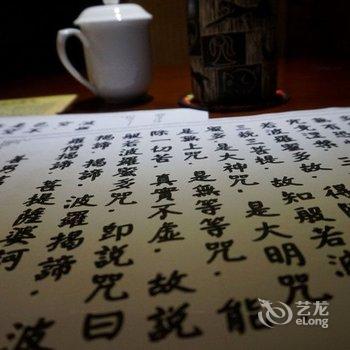 三菩提·故知般若波
羅蜜多·是大神咒·是大明咒
是無上咒·是無等等咒·能
除一切苦·真實不虛·故說
般若波羅蜜多咒·即說咒曰
揭諦·揭諦·波羅揭諦·波
羅僧揭諦·菩提薩婆訶
艺龙
eLong